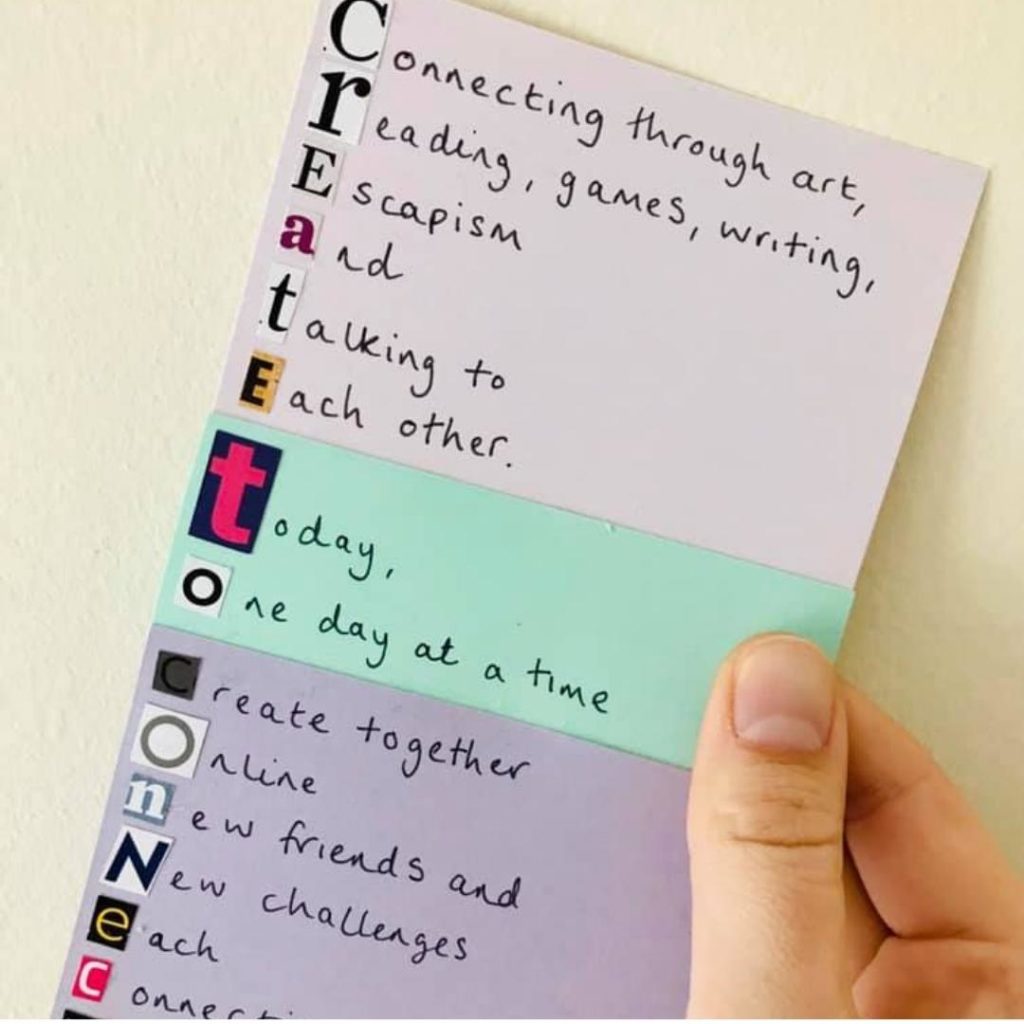 Connecting through art,
reading, games, writing,
Escapism
and
talking to
Each other.
today,
one day at a time
Create together
Online
new friends and
New challenges
each